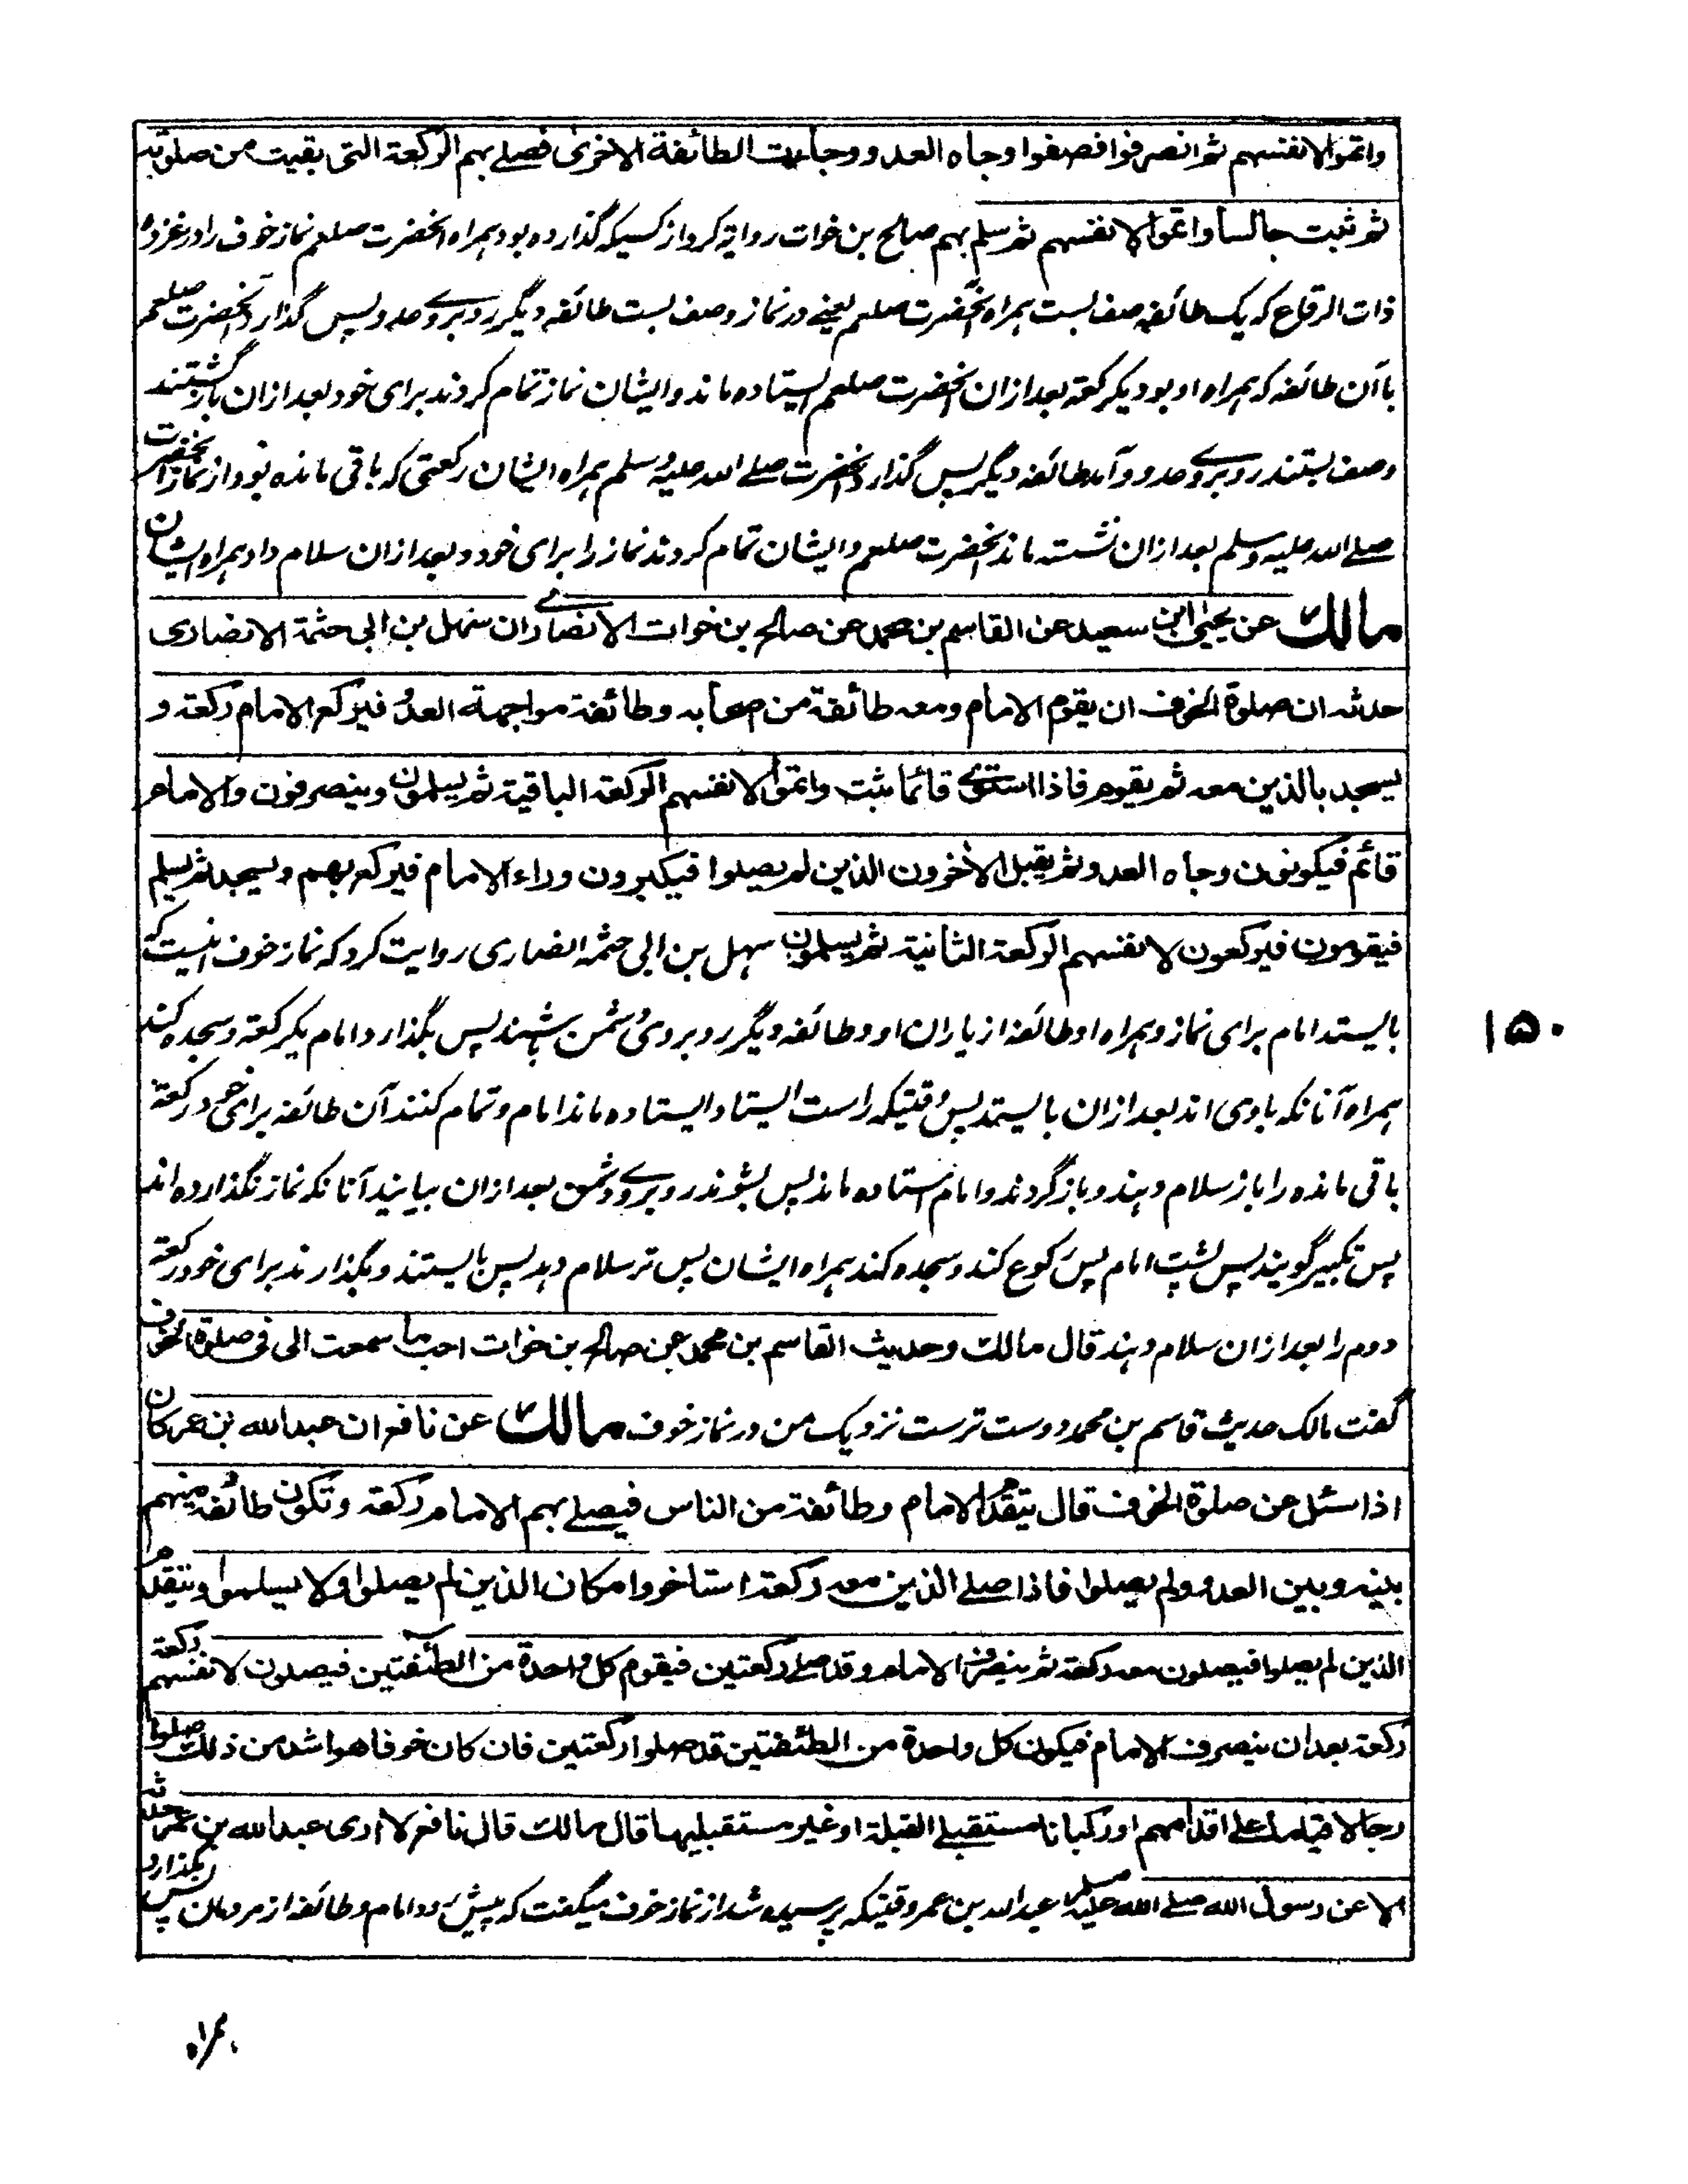 واتموا لانفسهم ثم انصرفوا فصفوا وجاه العدو وجاءت الطائفة الاخرى فصلے بهم الركعة التى بقيت من صلوته
ثم ثبت جالسا واتموا لانفسهم ثم سلم بهم صالح بن خوات روایة کرد از کسیکه گذارده بود همراه آنحضرت صلعم نماز خوف را در غزوهٔ
ذات الرقاع که یک طائفه صف بست همراه آنحضرت صلعم یعنے در نماز وصف بست طائفه دیگر روبروے عدو پس گذارد آنحضرت صلعم
با آن طائفه که همراه او بود یکرکعة بعد ازان آنحضرت صلعم ایستاده ماند وایشان نماز تمام کردند برای خود بعد ازان بازگشتند
وصف بستند روبروے عدو وآمد طائفه دیگر پس گذارد آنحضرت صلے الله علیه وسلم همراه ایشان رکعتی که باقی مانده بود از نماز آنحضرت
صلے الله علیه وسلم بعد ازان نشسته ماند آنحضرت صلعم وایشان تمام کردند نماز را برای خود وبعد ازان سلام داد همراه ایشان
مالك عن يحيى ابن سعيد عن القاسم بن محمد عن صالح بن خوات الانصارے ان سهل بن ابى حثمة الانصارى
حدثه ان صلوة الخوف ان يقوم الامام ومعه طائفة من اصحابه وطائفة مواجهة العدو فيركع الامام ركعة و
يسجد بالذين معه ثم يقوم فاذا استوے قائما ثبت واتموا لانفسهم الركعة الباقية ثم يسلمون وينصرفون والامام
قائم فيكونون وجاه العدو ثم يقبل الاخرون الذين لم يصلوا فيكبرون وراء الامام فيركع بهم ويسجد ثم يسلم
فيقومون فيركعون لانفسهم الركعة الثانية ثم يسلمون سهل بن ابی حثمه انصاری روایت کرد که نماز خوف اینست که
بایستد امام برای نماز وهمراه او طائفه از یاران او وطائفه دیگر روبروی دشمن باشند پس بگذارد امام یکرکعة وسجده کند
همراه آنانکه با وی اند بعد ازان بایستد پس وقتیکه راست ایستاد ایستاده ماند امام وتمام کنند آن طائفه برای خود رکعة
باقی مانده را باز سلام دهند وبازگردند وامام استاده ماند پس بشوند روبروے دشمن بعد ازان بیایند آنانکه نماز نگذارده اند
پس تکبیر گویند پس پشت امام پس رکوع کند وسجده کند همراه ایشان پس تر سلام دهد پس بایستند وبگذارند برای خود رکعة
دوم را بعد ازان سلام دهند قال مالك وحديث القاسم بن محمد عن صالح بن خوات احب ما سمعت الى فى صلوة الخوف
گفت مالک حدیث قاسم بن محمد دوست ترست نزدیک من در نماز خوف مالك عن نافع ان عبدالله بن عمر كان
اذا سئل عن صلوة الخوف قال يتقدم الامام وطائفة من الناس فيصلے بهم الامام ركعة وتكون طائفة منهم
بينه وبين العدو ولم يصلوا فاذا صلے الذين معه ركعة استاخروا مكان الذين لم يصلوا ولا يسلموا ويتقدم
الذين لم يصلوا فيصلون معه ركعة ثم ينصرف الامام وقد صلے ركعتين فيقوم كل واحدة من الطائفتين فيصلون لانفسهم ركعة
ركعة بعد ان ينصرف الامام فيكون كل واحدة من الطائفتين قد صلوا ركعتين فان كان خوفا هو اشد من ذلك صلوا
رجالا قياما على اقدامهم او ركبانا مستقبلے القبلة او غير مستقبليها قال مالك قال نافع لا ارى عبدالله بن عمر حدثه
الا عن رسول الله صلے الله عليه وسلم عبدالله بن عمر وقتیکه پرسیده شد از نماز خوف میگفت که پیش رود امام وطائفه از مردمان پس بگذارد
۱۵۰
همراه